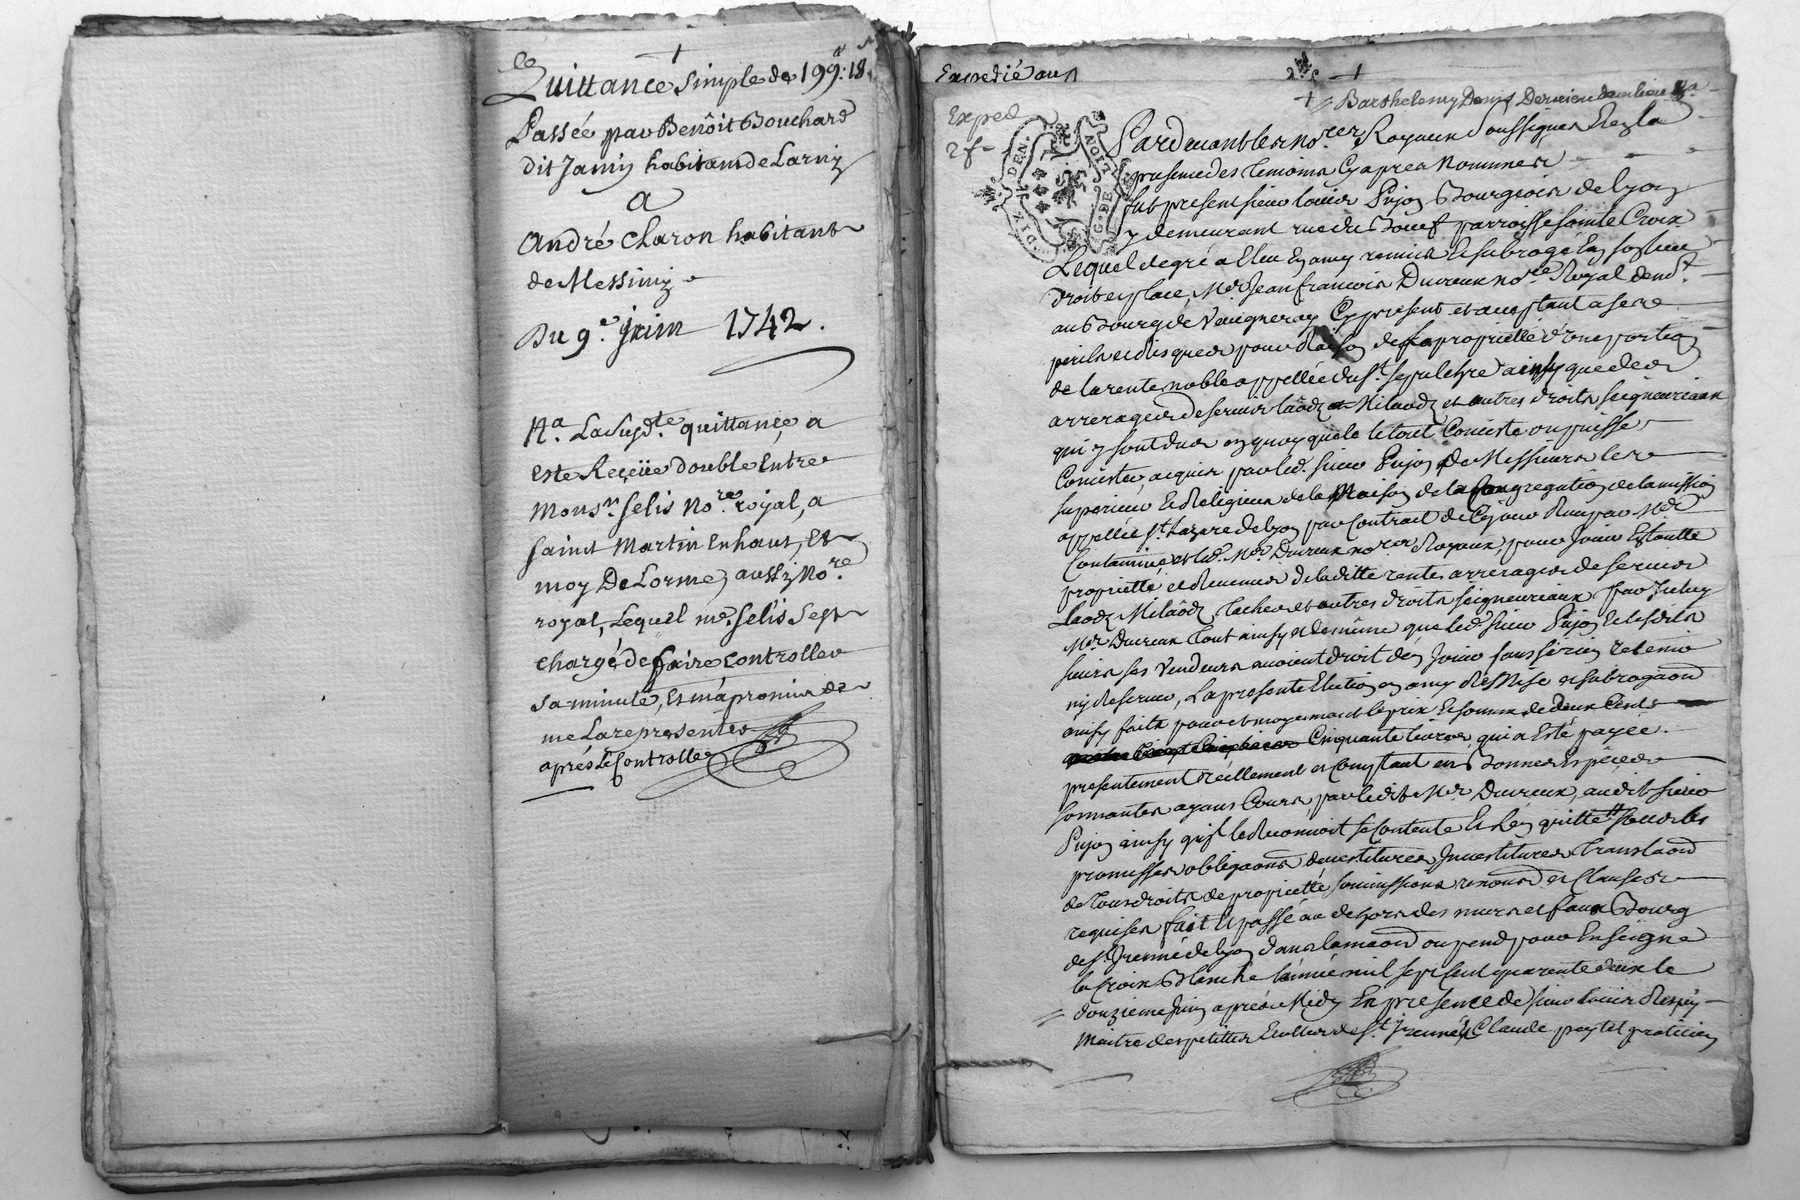 Quittance simple de 199.# 18.s
Passée par Benôit Bouchard
dit Jamy habitant de Larny
a
André Charon habitant
de Messimy
Du 9.e Juin 1742.
Na. La susdte. quittance, a
este Reçeüe double Entre
Monsr. Selis Nore. royal, a
saint Martin Enhaut, Et
moy DeLorme, aussy Nore.
royal, Lequel mr. Selis sest
chargé de faire controller
sa minute, Et m'a promis de
me La representer
après Le Controlle
Expedié au
2 f
Exped
2 f
G. DE LION
DIX DEN.
Barthelemy Denis Dervieu
Pardevant les nores. Royaux soussignes Et en la
presence des temoins Cy apres Nommes
fut present sieur Louis Pujon Bourgeois de lyon
y demeurant rue du Boeuf parroisse sainte Croix
Lequel de gré a Eleu En amy remis et subrogé En son lieu
droit et place, Mer. Jean francois Duvreux nore. Royal demt.
au Bourg de Vaugneray Cy present et acceptant a ses
perils et risques pour Raison de la proprieté d'une portion
de la rente noble appellée du St. sepulchre ainsy que des
arrerages de servis laods et Milaods et autres droits seigneuriaux
qui y sont dus en quoy que le tout Conciste ou puisse
Concister, acquis par led. sieur Pujon de Messieurs les
superieur Et Religieux de la Maison de la Congregation de la mission
appellée St. Lazare de lyon par Contract de Cejour Receu par Mer.
et led. Mer. Duvreux nores. Royaux, pour Jouir Et
proprieté et Revenus de la ditte rente arrerages de servis
Laods Milaods taches et autres droits seigneuriaux par Icelluy
Mer. Duvreux tout ainsy et de même que led. sieur Pujon Et lesdits
sieurs ses Vendeurs avoient droit d'en Jouir sans s'en rien retenir
ny Reserver, La presente Election en amy Remise et subrogaon
ainsy faite pour et moyenant le prix Et somme de deux Cents
Cinquante livres, qui a Esté payée
presentement Reellement et Comptant en Bonnes Especes
sonnantes ayans Cours par ledit Mer. Duvreux, audit sieur
Pujon ainsy qu'il le Reconnoit se Contente Et L'en quitte sous les
promesses obligaons devestitures Investitures translaon
de tous droits de proprieté soumissions renonon et Clauses
requises fait Et passé au dehors des murs et faux Bourg
de St. Irenné de lyon dans la maison ou pend pour Enseigne
la Croix Blanche l'année mil sept cent quarente deux le
douzieme Juin après Midy En presence de sieur Louis Respin
Maitre des petittes Ecolles de St. Irenné Et Claude peytel praticien